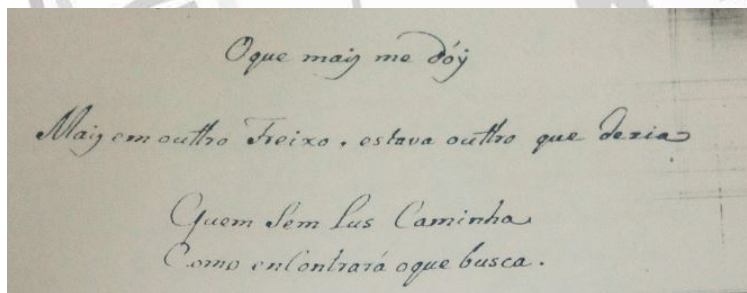 Oque mais me dóy
Mais em outtro Freixo. estava outtro que dezia
Quem Sem Lus Caminha
Como encontrará oque busca.